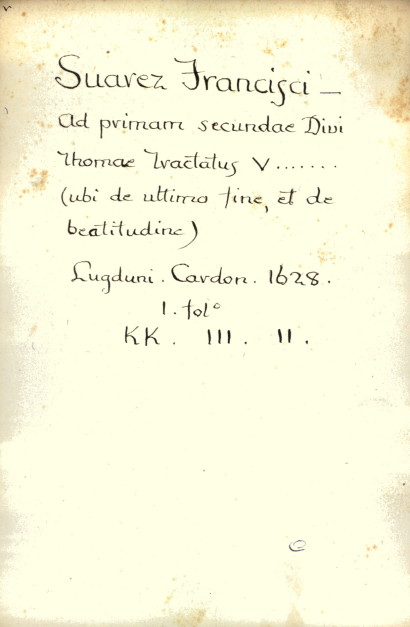 Suarez Francisci —
Ad primam secundae Divi
Thomae Tractatus V.......
(ubi de ultimo fine, et de
beatitudine)
Lugduni. Cardon. 1628.
1. folo
KK. III. II.